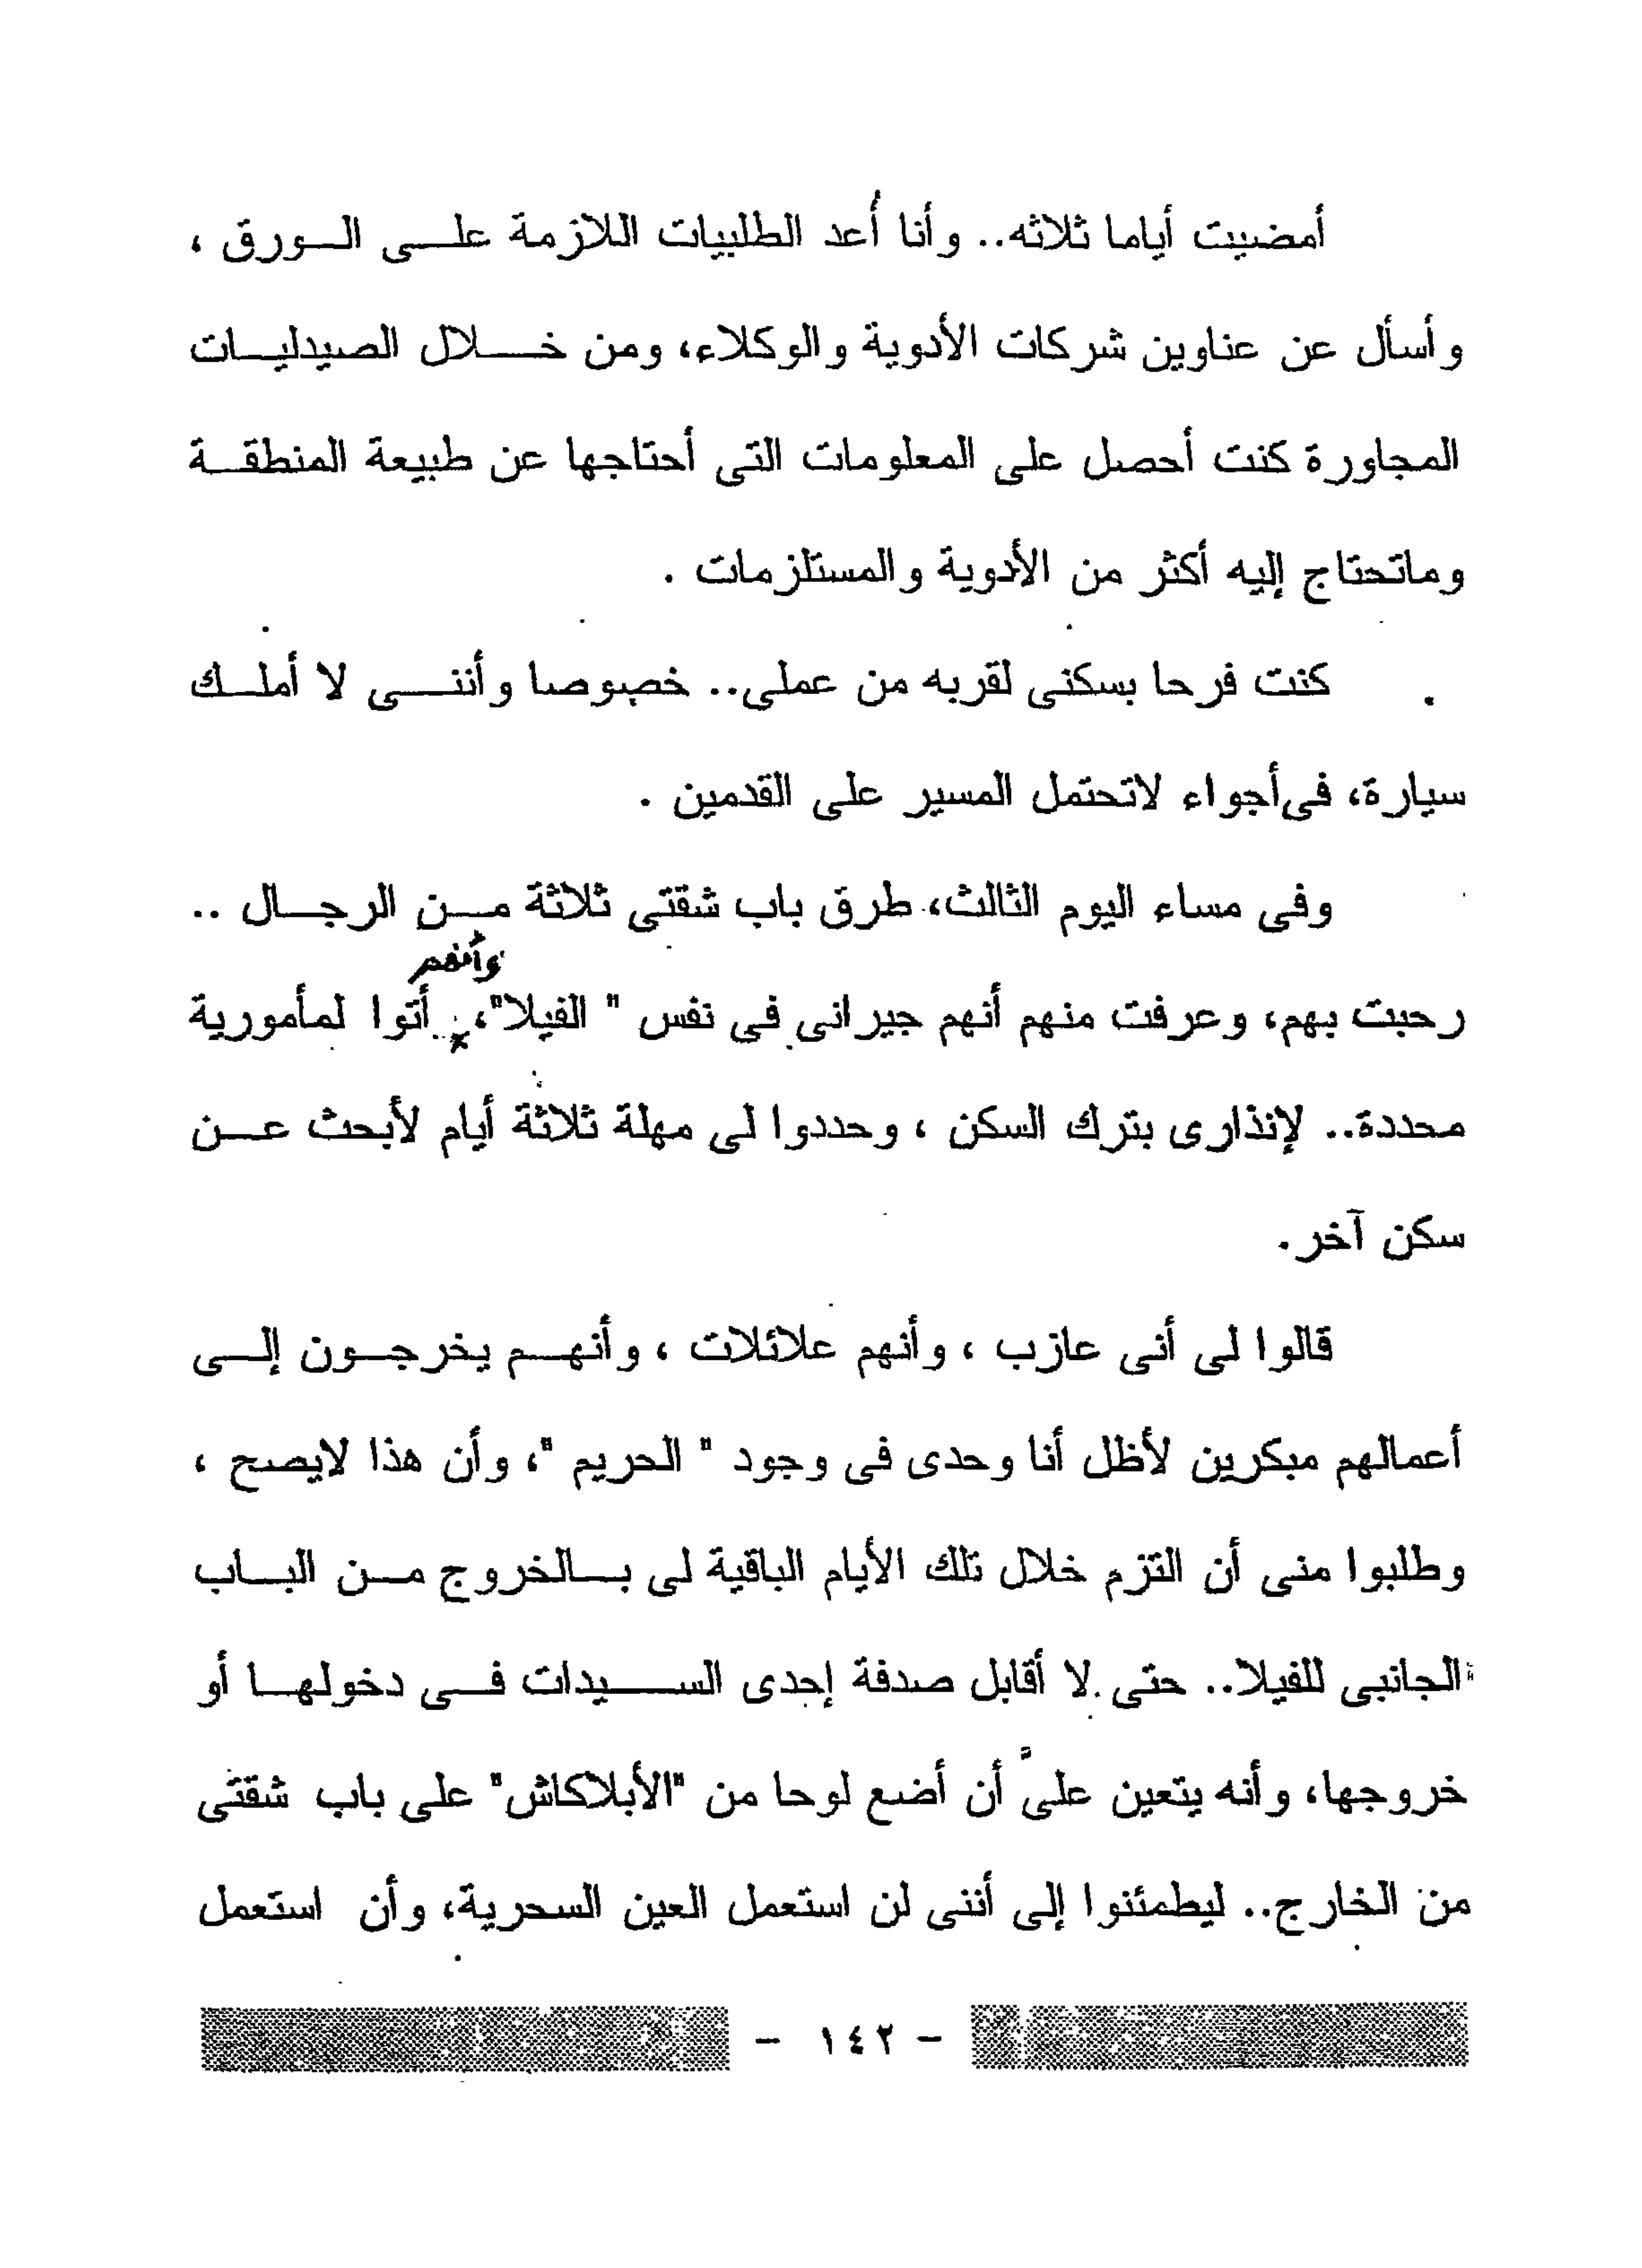 أمضيت أياما ثلاثه.. وأنا أُعد الطلبيات اللازمة على الورق ،
وأسأل عن عناوين شركات الأدوية والوكلاء، ومن خلال الصيدليات
المجاورة كنت أحصل على المعلومات التى أحتاجها عن طبيعة المنطقة
وماتحتاج إليه أكثر من الأدوية والمستلزمات .
كنت فرحا بسكنى لقربه من عملى.. خصوصا وأننى لا أملك
سيارة، فى أجواء لاتحتمل المسير على القدمين .
وفى مساء اليوم الثالث، طرق باب شقتى ثلاثة من الرجال ..
وأنهم
رحبت بهم، وعرفت منهم أنهم جيرانى فى نفس " الفيلا"، أتوا لمأمورية
محددة.. لإنذارى بترك السكن ، وحددوا لى مهلة ثلاثة أيام لأبحث عن
سكن آخر.
قالوا لى أنى عازب ، وأنهم علائلات ، وأنهم يخرجون إلى
أعمالهم مبكرين لأظل أنا وحدى فى وجود " الحريم "، وأن هذا لايصح ،
وطلبوا منى أن التزم خلال تلك الأيام الباقية لى بالخروج من الباب
الجانبى للفيلا.. حتى لا أقابل صدفة إحدى السيدات فى دخولها أو
خروجها، وأنه يتعين علىَّ أن أضع لوحا من "الأبلاكاش" على باب شقتى
من الخارج.. ليطمئنوا إلى أننى لن استعمل العين السحرية، وأن استعمل
- ١٤٢ -